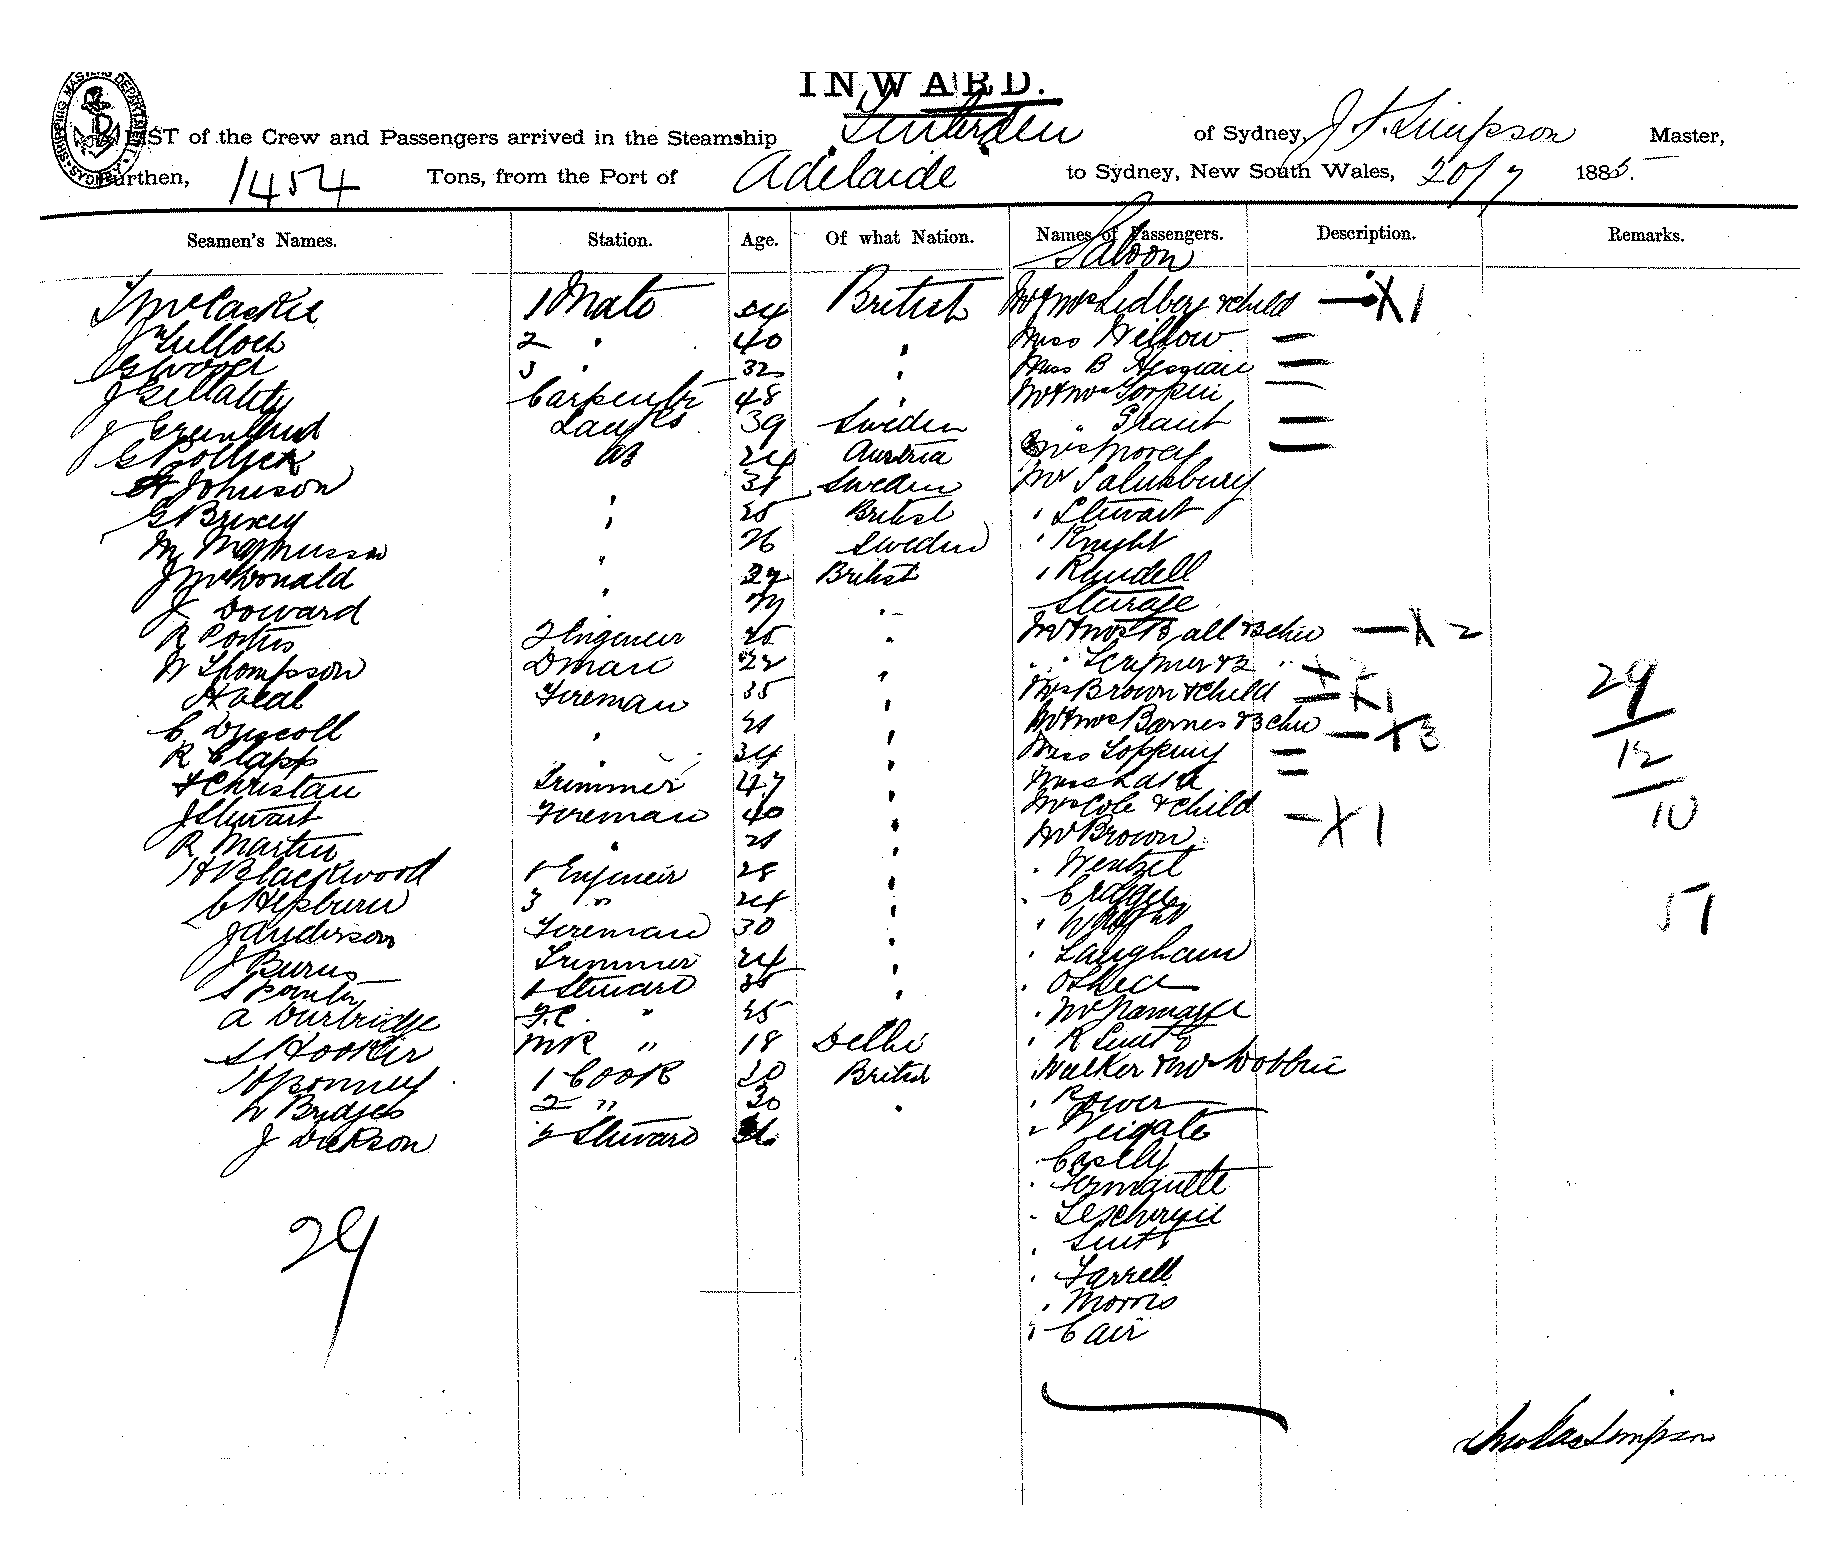 INWARD.
LIST of the Crew and Passengers arrived in the Steamship Tenterden of Sydney, J. Simpson Master,
Burthen, 1454 Tons, from the Port of Adelaide to Sydney, New South Wales, 20/7 1885.
Seamen's Names. Station. Age. Of what Nation. Names of Passengers. Description. Remarks.
Saloon
1 Mate British Mr & Mrs Ledberg & child — X 1
J Tulloch 2 " 40 " Miss Willow —
G Wood 3 " 32 " Miss B —
J Gellatly Carpenter 48 " Mr & Mrs —
J Lamps 39 Sweden " Grant —
G Pollick AB 24 Austria Mrs —
A Johnson " 31 Sweden Mr Salusbury
G " 25 British " Stewart
M Magnusson " 26 Sweden " Knight
J McDonald " 27 British " Rundell
J Doward " " Steerage
R Porteus 2 Engineer 25 " Mr & Mrs Ball & 2 chn — X 2
W Thompson D man 22 " " " & 2 " — X
H Veal Fireman 35 " Mrs Brown & child — X 1
C Driscoll " 21 " Mr & Mrs Barnes & 3 chn — X 3
R Clapp " 34 " Miss Topping —
Christan Trimmer 47 " Miss —
J Stewart Fireman 40 " Mrs Cole & child — X 1
R Martin " 21 " Mr Brown
H Blackwood 1 Engineer 28 " " Wentzel
C Hepburn 3 " 24 " "
J Anderson Fireman 30 " " Wright
J Burns Trimmer 24 " " Langham
S Pointer 1 Steward 35 " " O'Shea
A Durbridge F.C. " 25 " McNamara
S Hooker MR " 18 Delhi " R Smith
H Bonney 1 Cook 20 British Walker & Mr Dobbie
W Bridges 2 " 30 " " Power
J Dickson 2 Steward "
" Casely
"
"
" Smith
" Farrell
" Morris
" Cair
29
29
12
10
51
Simpson